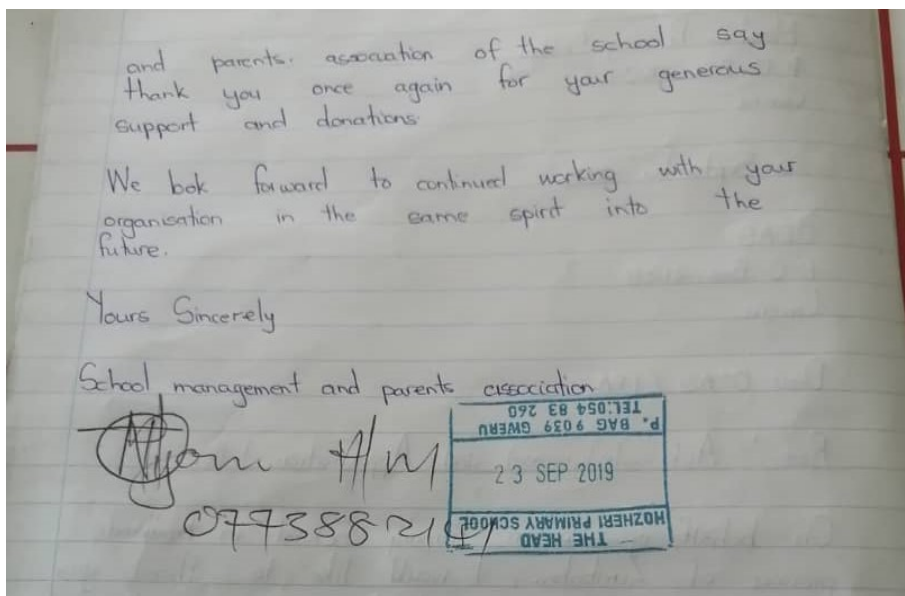 and parents. association of the school say
thank you once again for your generous
support and donations.
We look forward to continued working with your
organisation in the same spirit into the
future.
Yours Sincerely
School management and parents association
THE HEAD
HOZHERI PRIMARY SCHOOL
23 SEP 2019
P. BAG 9039 GWERU
TEL:054 83 260